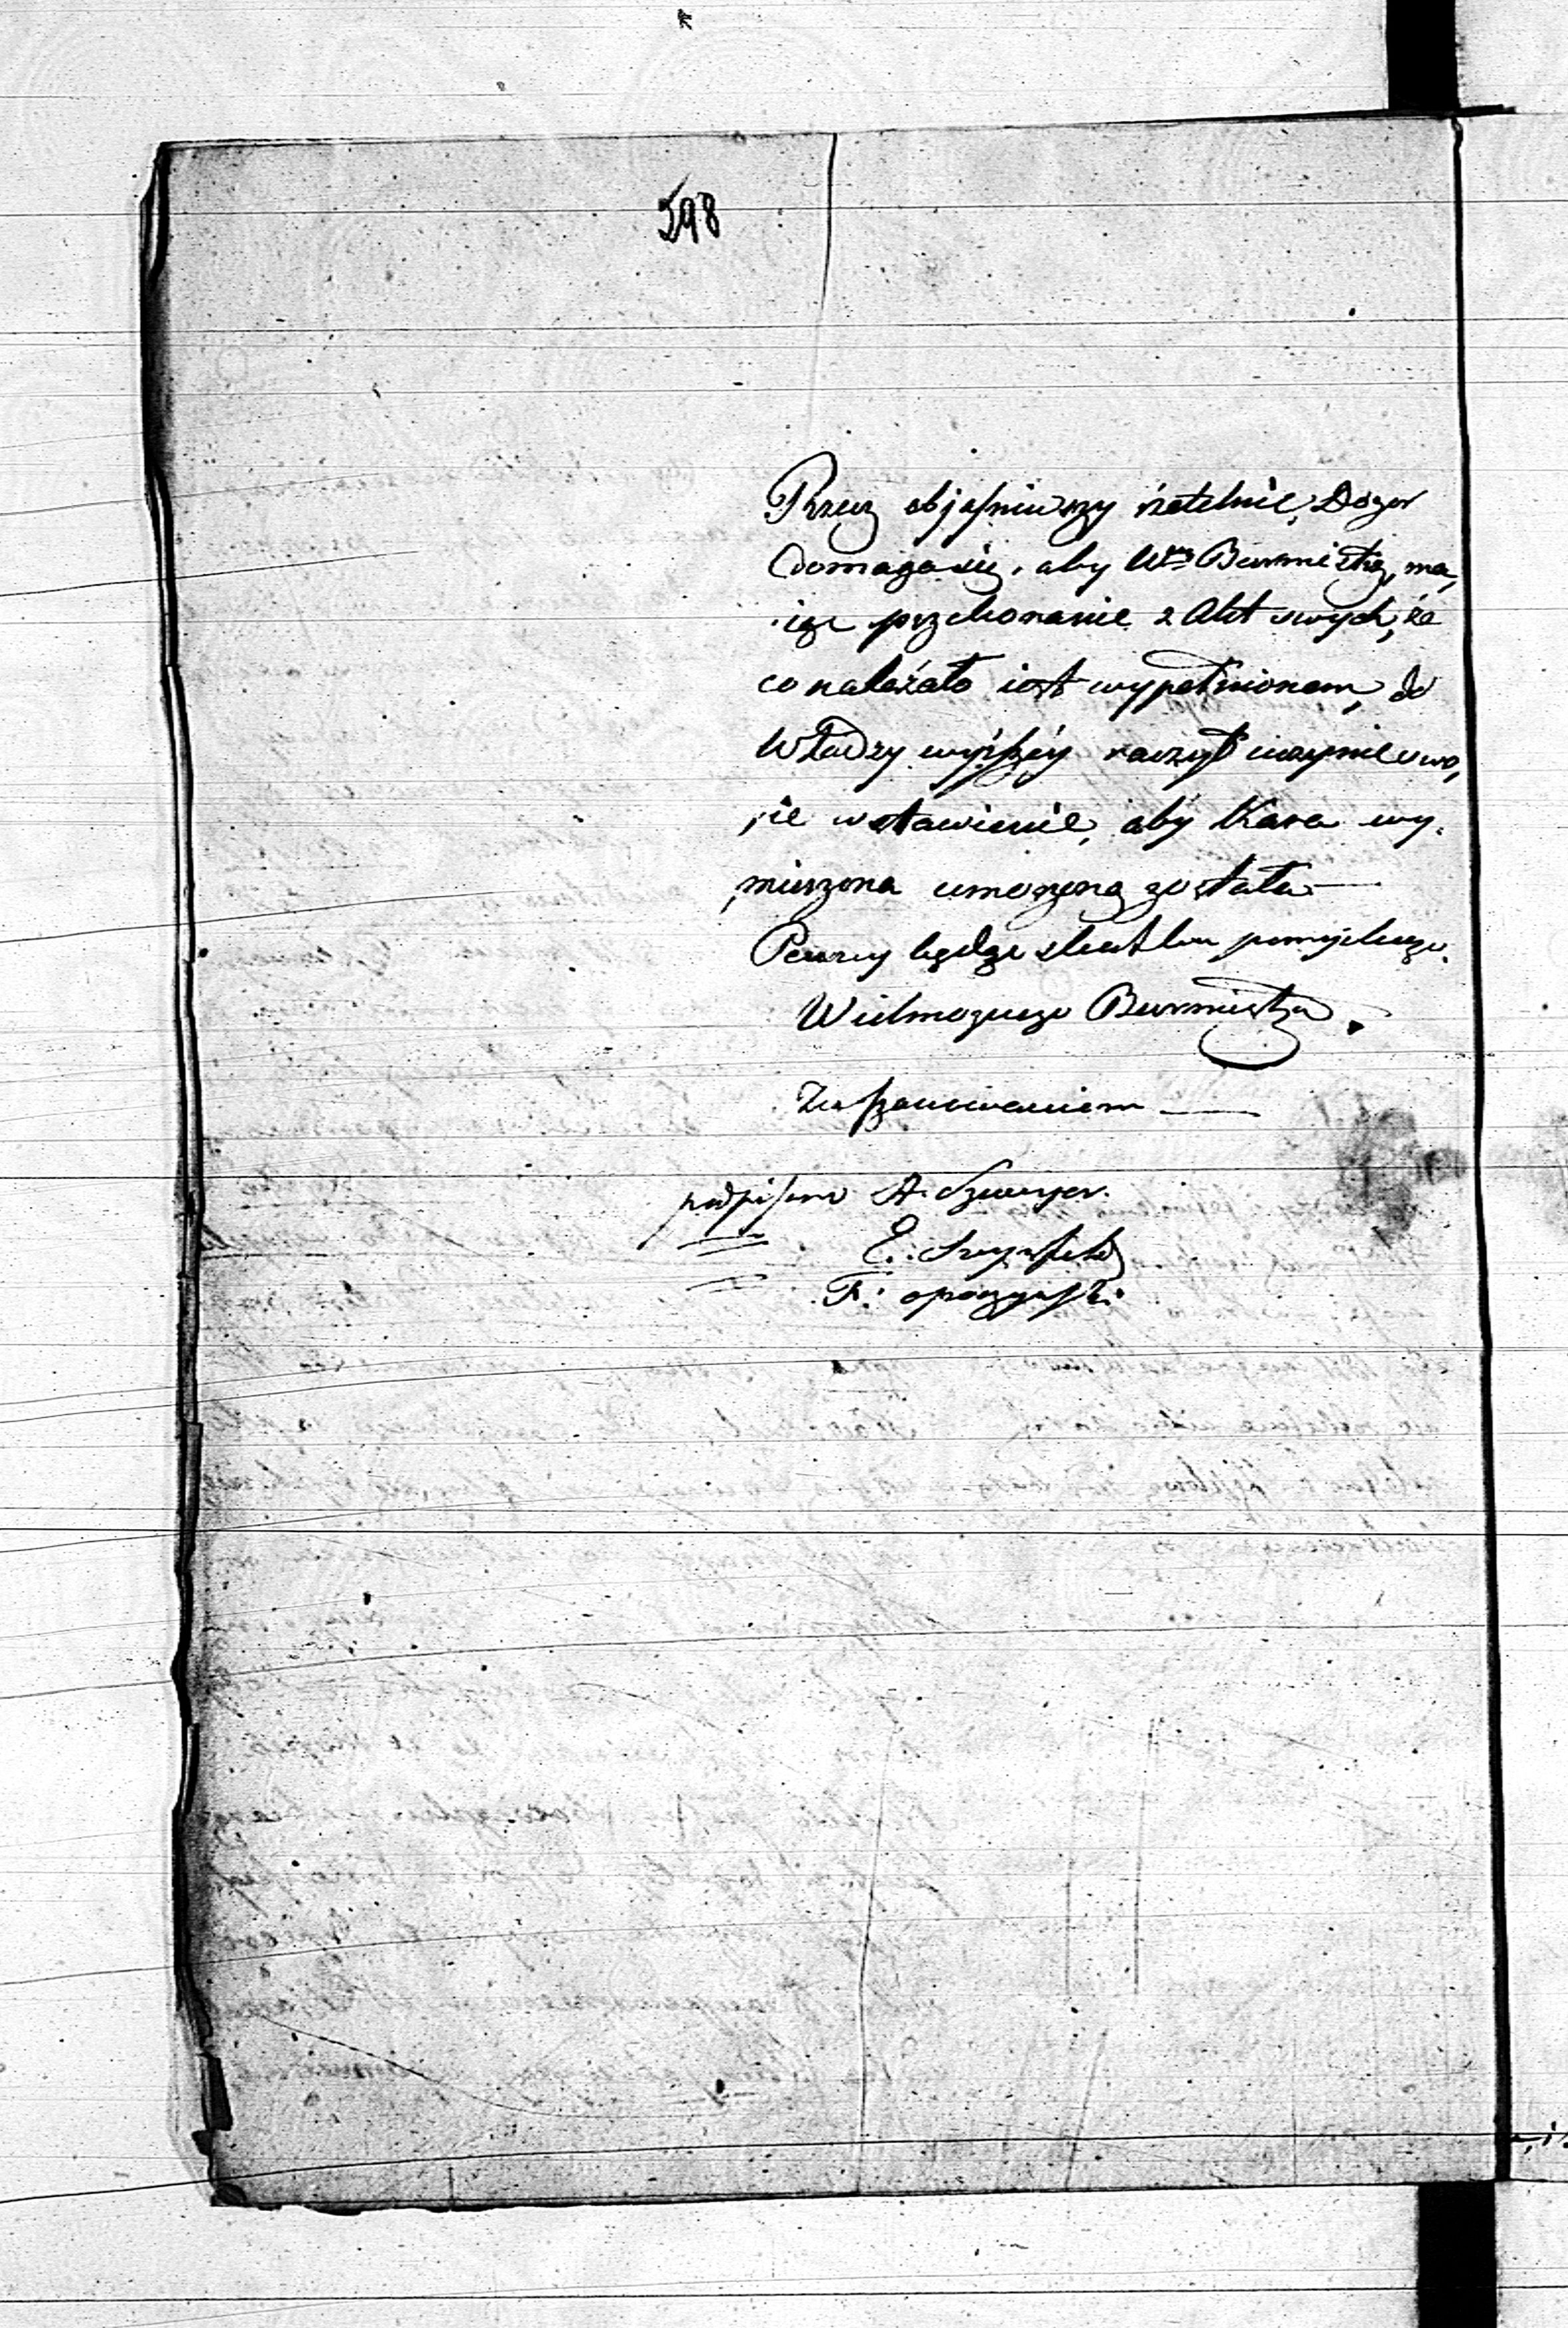 598
Rzecz objaśniwszy rzetelnie, Dozor
domaga się, aby Wny Burmistrz, ma,
iąc przekonanie z Akt swych, że
co należało iest wypełnionem, do
Władzy wyższéy raczył uczynić swo,
ie wstawienie, aby Kara wy,
mierzona umorzoną została —
Pewny będąc skutku pomyślnego
Wielmożnego Burmistrza.
Z uszanowaniem —
podpisano A. Szwarcer.
E.
F. Opoczyński